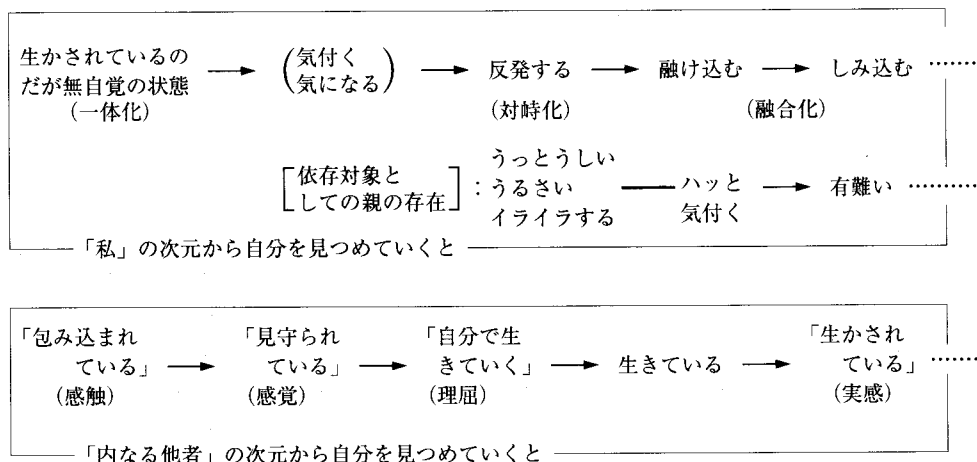 生かされているの
だが無自覚の状態
(一体化)
→
(気付く
気になる)
→ 反発する → 融け込む → しみ込む ………
(対峙化)
(融合化)
[依存対象と
しての親の存在]:
うっとうしい
うるさい
イライラする
ハッと
気付く
→ 有難い ………
「私」の次元から自分を見つめていくと
「包み込まれ
ている」
(感触)
→
「見守られ
ている」
(感覚)
→
「自分で生
きていく」
(理屈)
→ 生きている →
「生かされ
ている」………
(実感)
「内なる他者」の次元から自分を見つめていくと